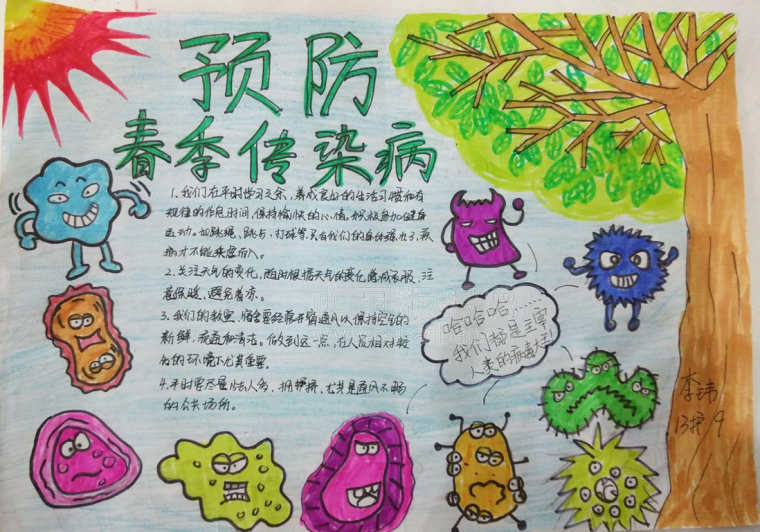 预防
春季传染病
1、我们在平时学习之余,养成良好的生活习惯和有
规律的作息时间,保持愉快的心情,积极参加健身
运动。如跳绳、跑步、打球等,只有我们的身体棒
病才不能乘虚而入。
2、关注天气的变化,随时根据天气的变化增减衣服,注
意保暖,避免着凉。
3、我们的教室、宿舍要经常开窗通风以保持空气的
新鲜,流通和清洁。做到这一点,在人员相对较
的环境下尤其重要。
4、平时要尽量少去人多、拥挤,尤其是通风不畅
的公共场所。
哈哈哈……
我们都是主宰
人类的病毒
李玮
13护 9